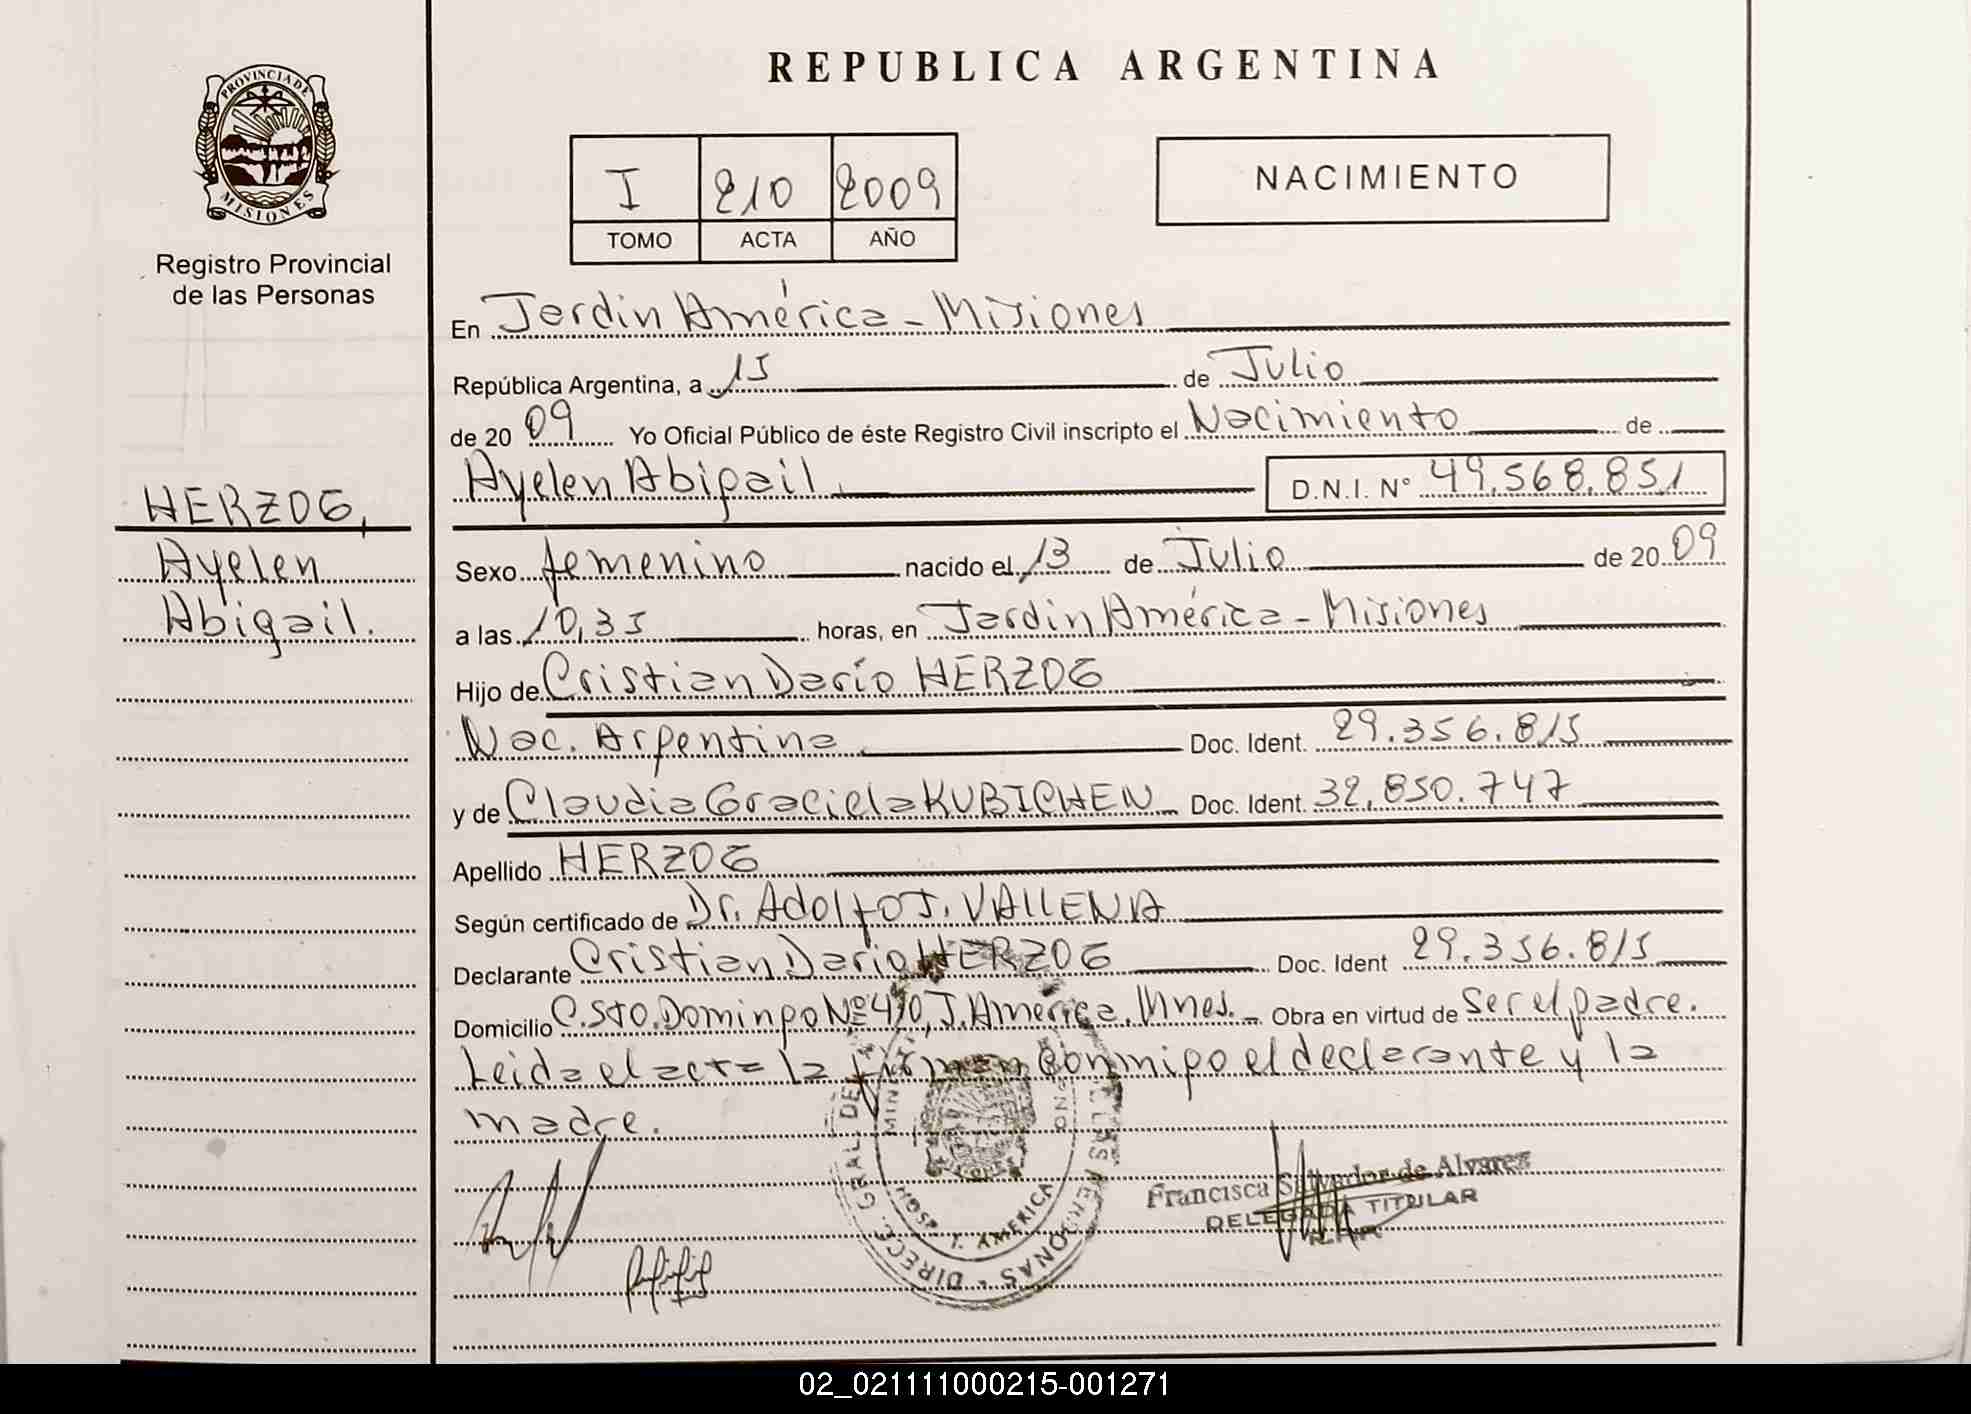 REPUBLICA ARGENTINA
PROVINCIA DE
MISIONES
Registro Provincial
de las Personas
I 210 2009
TOMO ACTA AÑO
NACIMIENTO
HERZOG,
Ayelen
Abigail.
En Jardin América - Misiones
República Argentina, a 15 de Julio
de 20 09 Yo Oficial Público de éste Registro Civil inscripto el Nacimiento de
Ayelen Abigail D.N.I. N° 49.568.851
Sexo femenino nacido el 13 de Julio de 20 09
a las 10,35 horas, en Jardin América - Misiones
Hijo de Cristian Darío HERZOG
Nac. Argentina Doc. Ident. 29.356.815
y de Claudia Graciela KUBICHEN Doc. Ident. 32.850.747
Apellido HERZOG
Según certificado de Dr. Adolfo J. VALLENA
Declarante Cristian Darío HERZOG Doc. Ident 29.356.815
Domicilio C. Sto. Domingo Nº 410, J. América, Mnes. Obra en virtud de Ser el padre.
Leida el acta la firman conmigo el declarante y la
madre.
DIRECC. GRAL. DE LAS PERSONAS
J. AMERICA
Francisca Salvador de Alvarez
DELEGADA TITULAR
02_021111000215-001271